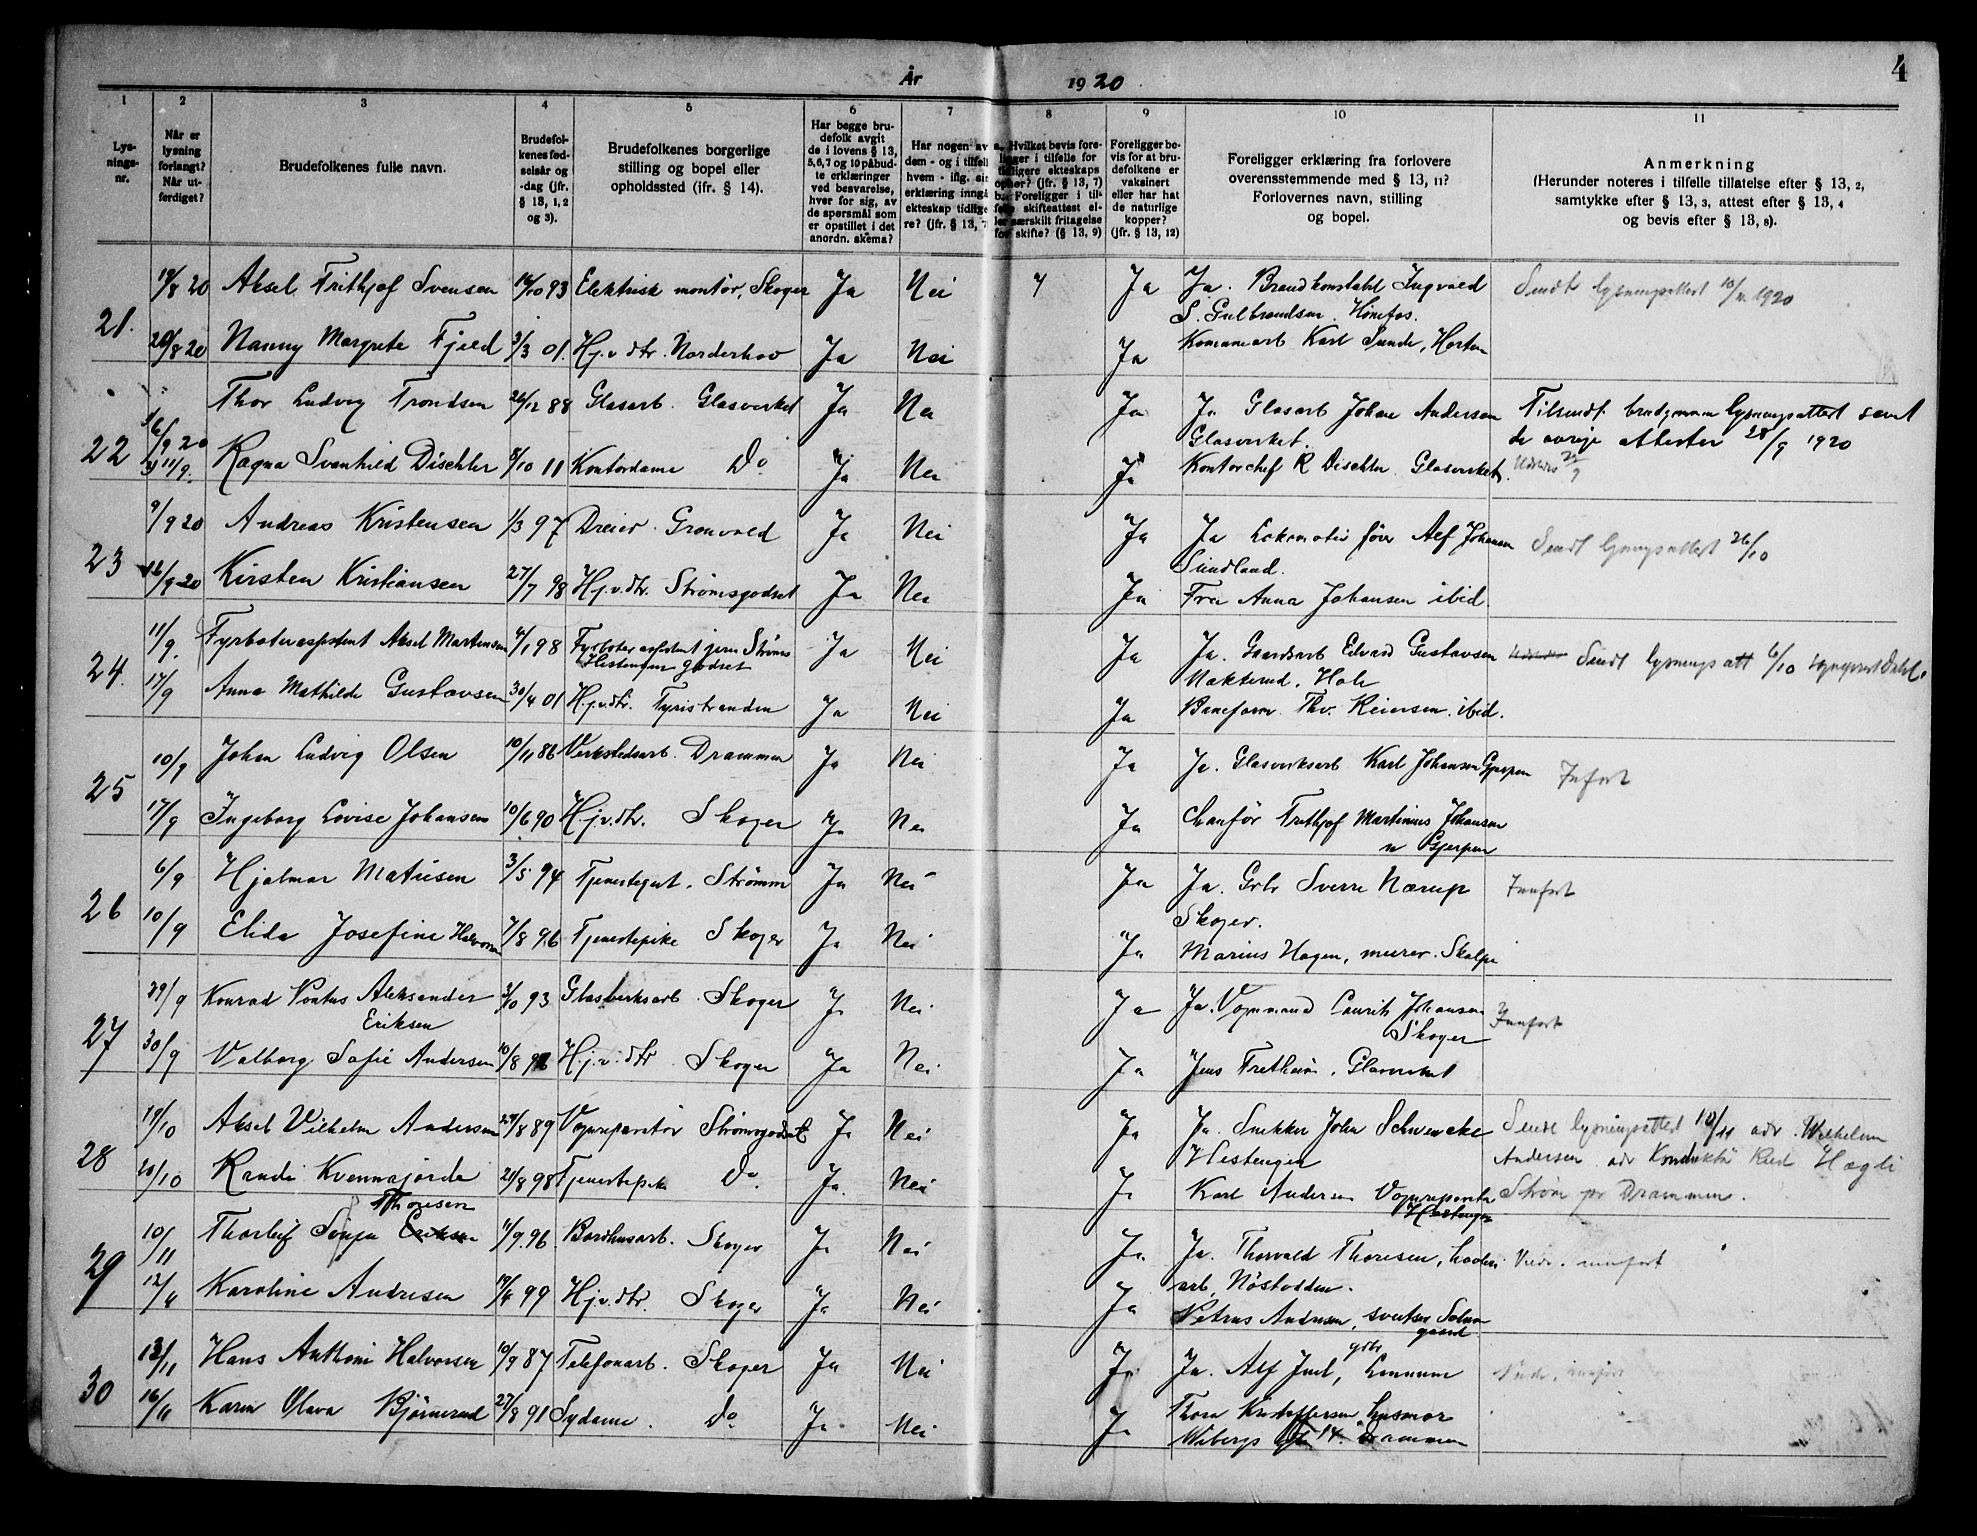 4
År 1920
1
2
3
4
5
6
7
8
9
10
11
Lys-
nings-
nr.
Når er
lysning
forlangt?
Når ut-
ferdiget?
Brudefolkenes fulle navn.
Brudefol-
kenes fød-
selsår og
-dag (jfr.
§ 13, 1, 2
og 3).
Brudefolkenes borgerlige
stilling og bopel eller
opholdssted (ifr. § 14).
Har begge bru-
defolk avgit
de i lovens § 13,
5, 6, 7 og 10 påbud-
te erklæringer
ved besvarelse,
hver for sig, av
de spørsmål som
er opstillet i det
anordn. skema?
Har nogen av
dem - og i tilfell
hvem - iflg. sin
erklæring inngå
ekteskap tidlige
re? (jfr. § 13, 7
Hvilket bevis fore-
ligger i tilfelle for
tidligere ekteskaps
ophør? (jfr. § 13, 7)
Foreligger i til-
felle skifteattest el-
ler særskilt fritagelse
for skifte? (§ 13, 9)
Foreligger be-
vis for at bru-
defolkene er
vaksinert
eller har hat
de naturlige
kopper?
(jfr. § 13, 12)
Foreligger erklæring fra forlovere
overensstemmende med § 13, 11?
Forlovernes navn, stilling
og bopel.
Anmerkning
(Herunder noteres i tilfelle tillatelse efter § 13, 2,
samtykke efter § 13, 3, attest efter § 13, 4
og bevis efter § 13, 8).
21. 19/8 20 Aksel Frithjof Svensen 14/10 93 Elektrisk montör, Skoger Ja Nei Ja Ja. Brandkonstabel Ingvald Sendt lysningsattest 10/11 1920
S. Gulbrandsen. Hönefos.
20/8 20 Nanny Margrete Fjeld 3/3 01. Hj.v.dtr. Norderhov Ja Nei Ja Karl Sunde, Horten
22 Thor Ludvig Trondsen 26/12 88 Glasarb. Glasverket Ja Nei Ja Ja Glasarb Johan Andersen Tilsendt brudgommen lysningsattest samt
Glasverket. de övrige attester 28/9 1920
Ragna Svanhild Dischler 8/10 11 Kontordame Do Ja Nei Ja Kontorchef R Dischler Glasverket.
11/9.
23 9/9 20 Andreas Kristensen 1/3 97 Dreier. Grönvold Ja Nei Ja Ja Lokomotivförer Alf Johansen Sendt lysningsattest 26/10
Sundland.
12/9 20 Kirsten Kristiansen 27/7 98 Hj.v.dtr. Strömsgodset Ja Nei Ja Fru Anna Johansen ibid.
24. 11/9. Fyrböterassistent Aksel Martinsen 4/1 98 Fyrböterassistent jern Ströms Ja Nei Ja Ja. Gaardsarb Edvard Gustavsen Sendt lysningsatt 6/10
Hestengen godset Nakterud. Hole
17/9 Anna Mathilde Gustavsen 30/4 01 Hj.v.dtr. Tyristranden Ja Nei Ja Baneform. Thv. Reiersen. ibid.
25 10/9 Johan Ludvig Olsen 10/11 86 Verkstedsarb. Drammen Ja Nei Ja Ja. Glasverksarb Karl Johansen Gjerpen Infört
17/9 Ingeborg Lovise Johansen 10/6 90 Hj.v.dtr. Skoger Ja Nei Ja Chauför Frithjof Martinius Johansen
Gjerpen
26 6/9 Hjalmar Matisen 3/5 94 Tjenestegut. Strömm Ja Nei Ja Ja. Grbr Sverre Nærup Innfört
Skoger.
10/9 Elida Josefine Halvorsen 7/8 96 Tjenestepike Skoger Ja Nei Ja Marius Hagen, murer.
27 29/9 Konrad Pontus Aleksander Glasverksarb Skoger Ja Nei Ja Ja. Vognmand Laurits Johansen Innfört
Eriksen Skoger
30/9 Valborg Sofie Andersen Hj.v.dtr. Skoger Ja Nei Ja Jens Fretheim. Glasverket
28 19/10 Aksel Vilhelm Andersen 29/8 89 Vognreparatör Strömsgodset Ja Nei Ja Ja. Snekker John Schwencke Sendt lysningsattest 10/11 adr. Wilhelm
Hestengen Andersen adr Konduktör Rud Hægli
20/10 Randi Kvennajorde 21/8 98 Tjenestepike Do Ja. Nei Ja Karl Andersen Vognreparatör Ström pr Drammen.
Hestengen
29 Thoresen
10/11 Thorleif Sönju Eriksen 11/9. 96 Skoger Ja Nei Ja Ja. Thorvald Thoresen,
arb, Nöstodden.
12/11 Karoline Andresen 99 Hj.v.dtr. Skoger Ja Nei Ja Petrus Andresen,
30 13/11 Hans Anthon Halvorsen 10/9 87 Telefonarb. Skoger Ja Nei Ja Ja. Alf Juel, grbr
16/11 Karen Olava Björnerud 27/8 91 Sydame. Do Ja Nei Ja Thora Kristoffersen
Wibergs 14. Drammen